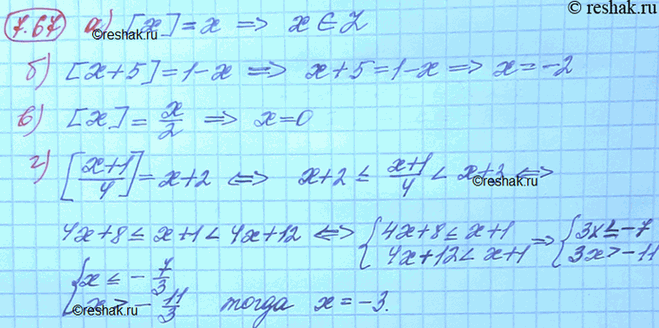 ©reshak.ru
7.67 а) [x] = x ⇒ x ∈ Z
©reshak.ru
б) [x+5] = 1-x ⇒ x+5 = 1-x ⇒ x = -2
в) [x] = x/2 ⇒ x = 0
г) [(x+1)/4] = x+2 ⇔ x+2 ≤ (x+1)/4 < x+3 ⇔
©reshak.ru
4x+8 ≤ x+1 < 4x+12 ⇔ { 4x+8 ≤ x+1 4x+12 < x+1 ⇒ { 3x ≤ -7 3x > -11
{ x ≤ -7/3 x > -11/3 тогда x = -3.
©reshak.ru